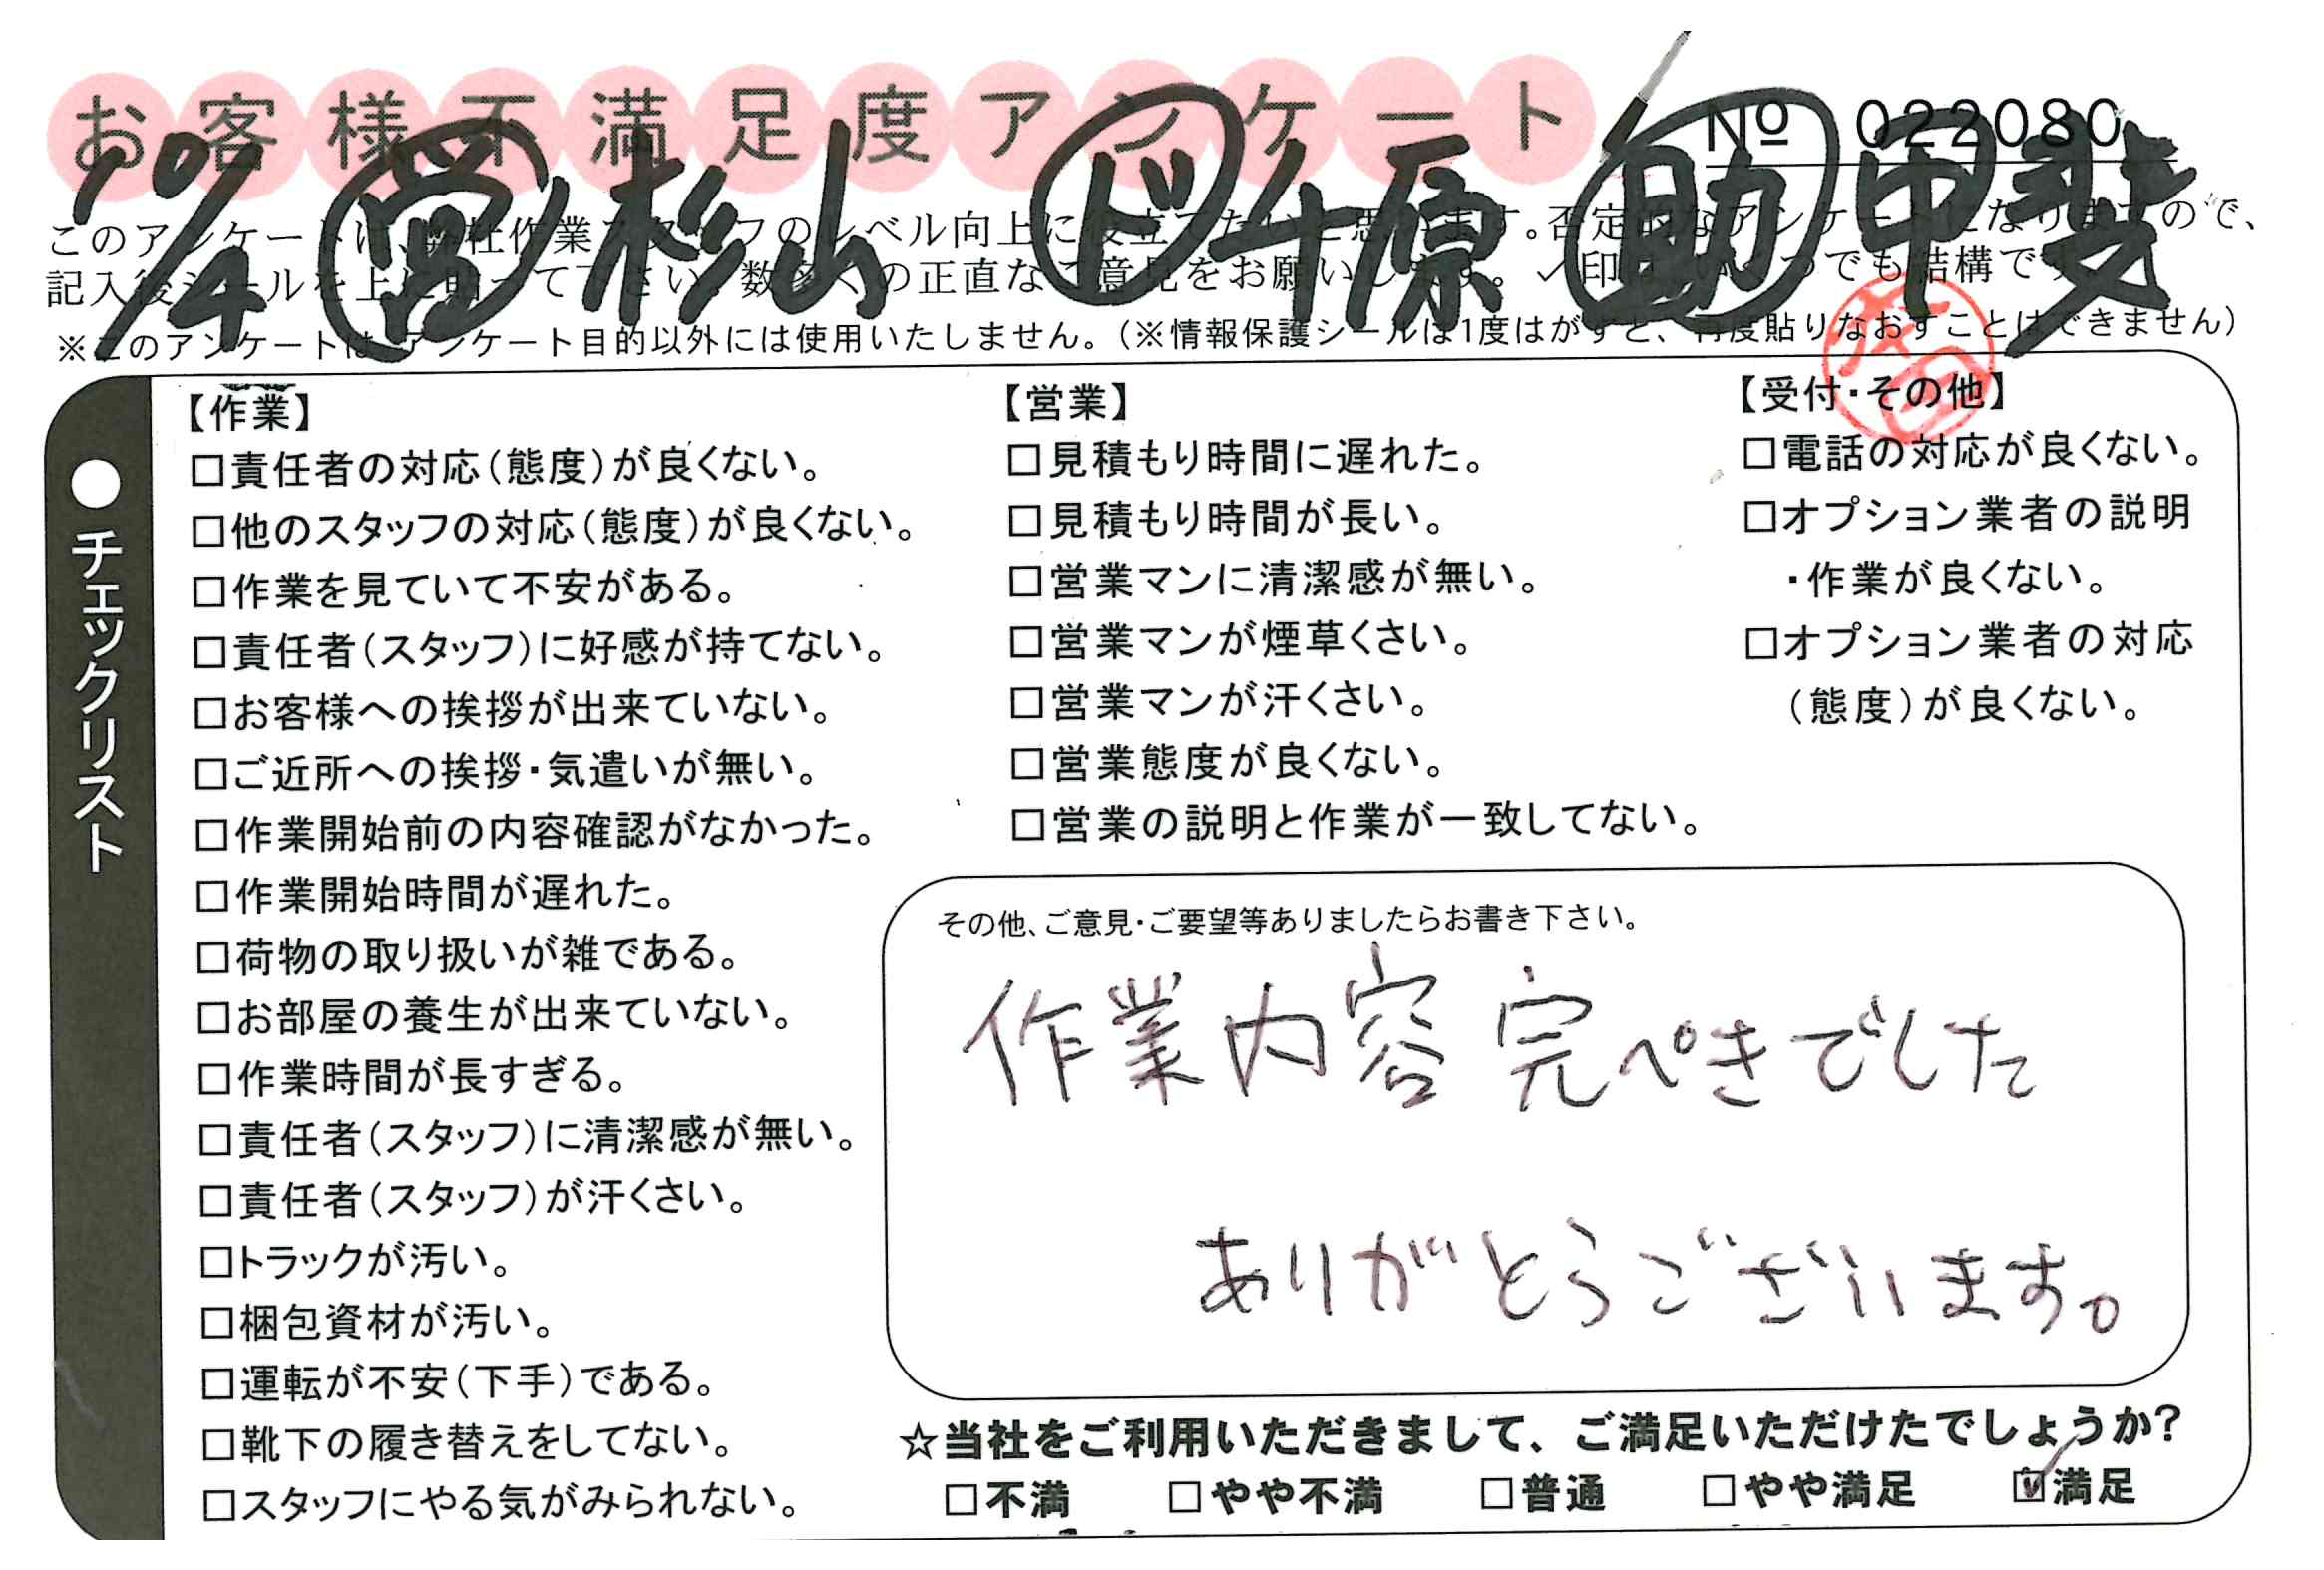 お客様不満足度アンケート
№ 022080
10/4 営 杉山 ド 千原 助 甲斐
このアンケートは、弊社作業スタッフのレベル向上に役立てたいと思います。否定的なアンケートになりますので、
記入後シールを上に貼って下さい。数多くの正直なご意見をお願いします。✓印は、いくつでも結構です。
※このアンケートは、アンケート目的以外には使用いたしません。（※情報保護シールは1度はがすと、再度貼りなおすことはできません）
●チェックリスト
【作業】
□責任者の対応（態度）が良くない。
□他のスタッフの対応（態度）が良くない。
□作業を見ていて不安がある。
□責任者（スタッフ）に好感が持てない。
□お客様への挨拶が出来ていない。
□ご近所への挨拶・気遣いが無い。
□作業開始前の内容確認がなかった。
□作業開始時間が遅れた。
□荷物の取り扱いが雑である。
□お部屋の養生が出来ていない。
□作業時間が長すぎる。
□責任者（スタッフ）に清潔感が無い。
□責任者（スタッフ）が汗くさい。
□トラックが汚い。
□梱包資材が汚い。
□運転が不安（下手）である。
□靴下の履き替えをしてない。
□スタッフにやる気がみられない。
【営業】
□見積もり時間に遅れた。
□見積もり時間が長い。
□営業マンに清潔感が無い。
□営業マンが煙草くさい。
□営業マンが汗くさい。
□営業態度が良くない。
□営業の説明と作業が一致してない。
【受付・その他】
□電話の対応が良くない。
□オプション業者の説明
・作業が良くない。
□オプション業者の対応
（態度）が良くない。
その他、ご意見・ご要望等ありましたらお書き下さい。
作業内容 完ぺきでした
ありがとうございます。
☆当社をご利用いただきまして、ご満足いただけたでしょうか？
□不満 □やや不満 □普通 □やや満足 ☑満足